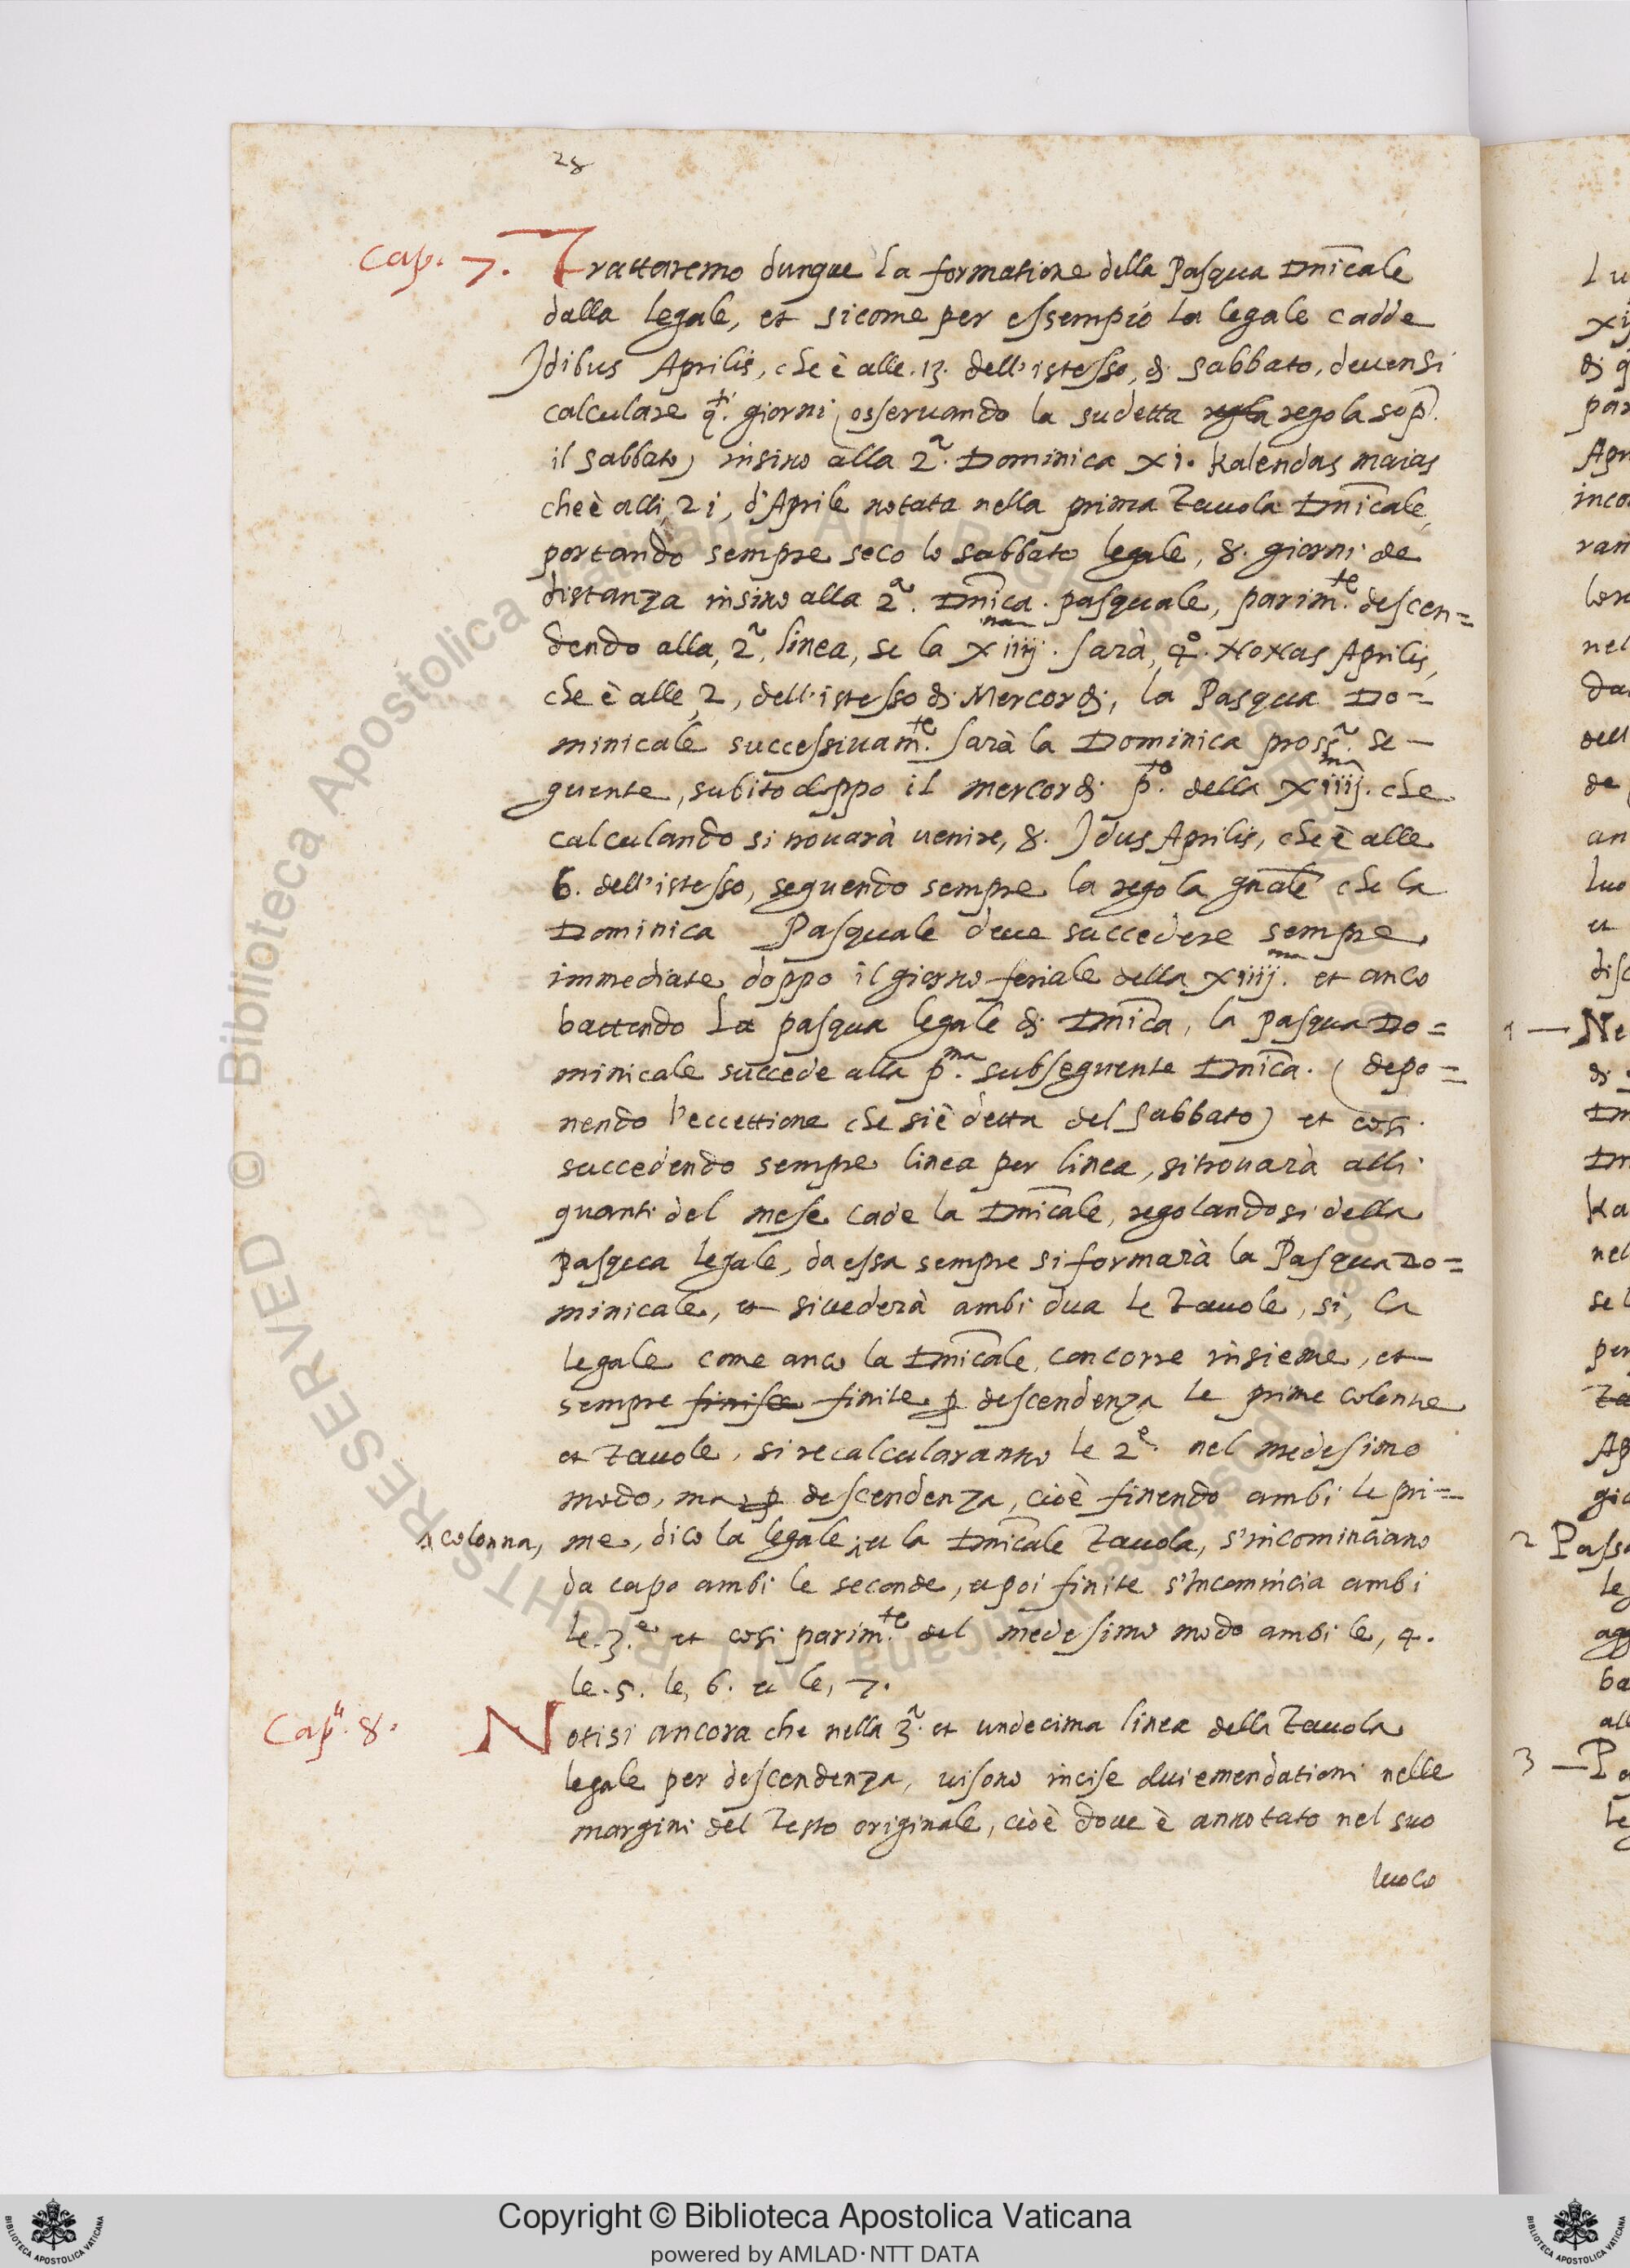 28
Cap. 7. Trattaremo dunque la formatione della Pasqua Dnicale
dalla legale, et sicome per essempio la legale cadde
Idibus Aprilis, che è alle .13. dell'istesso, di Sabbato, deuensi
calculare q.ti giorni (osseruando la sudetta regla regola sop.
il Sabbato) insino alla 2.a Dominica XI. Kalendas maias
che è alli, 21, d'Aprile notata nella prima Tauola Dnicale,
portando sempre seco lo sabbato legale, 8. giorni de
distanza insino alla 2.a Dnica. pasquale, parim.te descen=
dendo alla, 2.a linea, se la Xiiij.ma sarà, 4.o Nonas Aprilis,
che è alle, 2, dell'istesso di Mercordi, la Pasqua Do=
minicale successiuam.te sarà la Dominica pross.a se-
guente, subito doppo il mercordi p.to della Xiiij.ma che
calculando si trouarà uenire, 8. Idus Aprilis, che è alle
6. dell'istesso, seguendo sempre la regola gnale che la
Dominica Pasquale deue succedere sempre
immediate doppo il giorno feriale della Xiiij.ma et anco
battendo la pasqua legale di Dnica, la pasqua Do=
minicale succede alla p.ma subseguente Dnica. (depo=
nendo l'eccettione che si è detta del Sabbato) et cosi
succedendo sempre linea per linea, si trouarà alli
quanti del mese cade la Dnicale, regolandosi della
Pasqua legale, da essa sempre si formarà la Pasqua Do=
minicale, et si uederà ambi dua le Tauole, si, la
legale come anco la Dnicale, concorre insieme, et
sempre finisce finite p descendenza le prime colonne
et Tauole, si recalcularanno le 2.e nel medesimo
modo, ma p descendenza, cioè finendo ambi le pri=
^colonna, me, dico la legale ^ et la Dnicale Tauola, s'incominciano
da capo ambi le seconde, et poi finite s'Incomincia ambi
le .3.e et cosi parim.te del medesimo modo ambi le, 4.
le .5. le, 6. et le, 7.
Cap. 8. Notisi ancora che nella 3.a et undecima linea della Tauola
legale per descendenza, ui sono incise dui emendationi nelle
margini del Testo originale, cioè doue è annotato nel suo
luoco